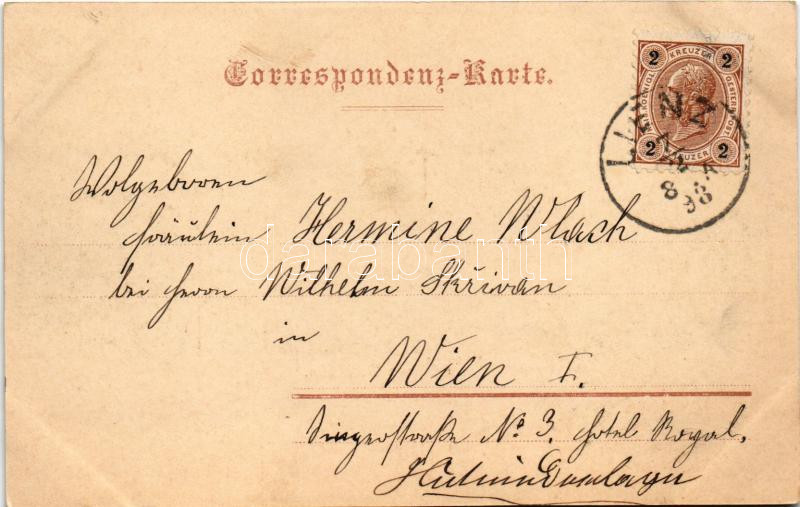 Correspondenz-Karte.
2 KREUZER 2
2 KREUZER 2
LIENZ
8
98
Wolgeboren
Fräulein Hermine Wlach
bei Herrn Wilhelm Skřivan
in
Wien I.
Singerstraße No 3. Hotel Royal.
darabanth